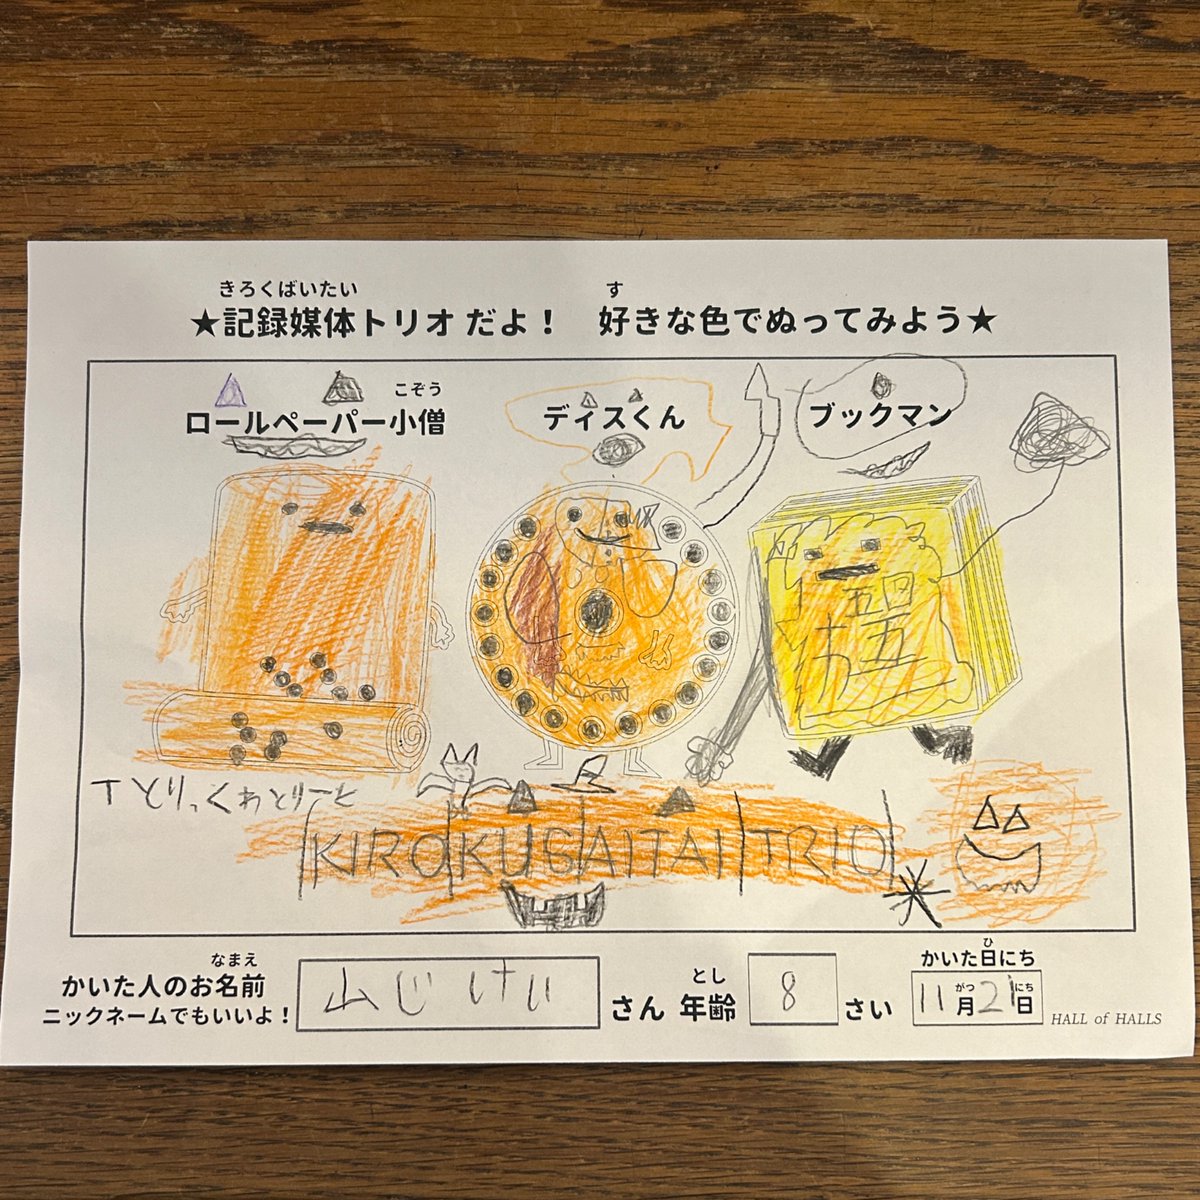 きろくばいたい す
★記録媒体トリオ だよ！ 好きな色でぬってみよう★
こぞう
ロールペーパー小僧 ディスくん ブックマン
とりっくおとりーと
KIROKUBAITAI TRIO
なまえ
かいた人のお名前
ニックネームでもいいよ！
山じけい
さん
とし
年齢
8
さい
ひ
かいた日にち
11月21日
がつ にち
HALL of HALLS